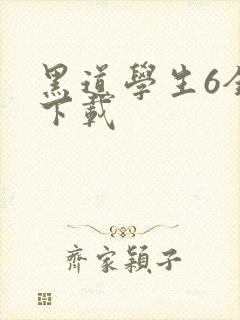 黑道學生6全
下載
齊家穎子